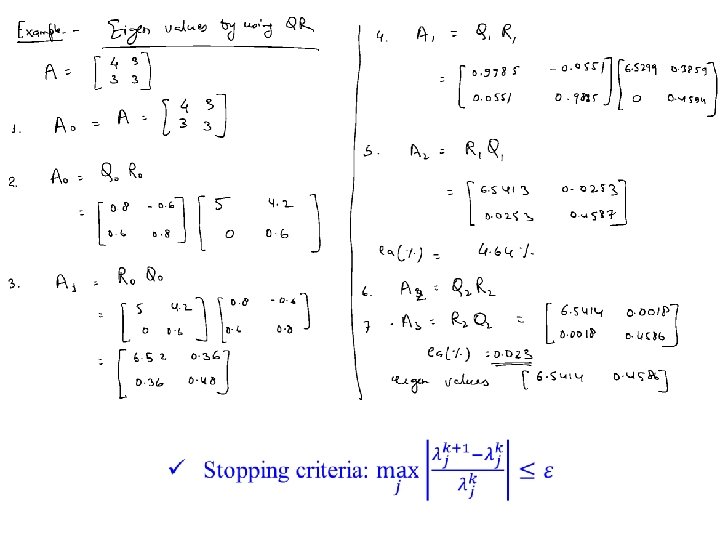 Example.- Eigen values by using QR
A = [ 4 3
3 3 ]
1. A0 = A = [ 4 3
3 3 ]
2. A0 = Q0 R0
= [ 0.8 -0.6
0.6 0.8 ] [ 5 4.2
0 0.6 ]
3. A1 = R0 Q0
= [ 5 4.2
0 0.6 ] [ 0.8 -0.6
0.6 0.8 ]
= [ 6.52 0.36
0.36 0.48 ]
4. A1 = Q1 R1
= [ 0.9985 -0.0551
0.0551 0.9985 ] [ 6.5299 0.3859
0 0.4594 ]
5. A2 = R1 Q1
= [ 6.5413 0.0253
0.0253 0.4587 ]
ea(%) = 4.64 %
6. A2 = Q2 R2
7. A3 = R2 Q2 = [ 6.5414 0.0018
0.0018 0.4586 ]
ea(%) = 0.023
eigen values [ 6.5414 0.4586 ]
✓ Stopping criteria: max_j |(λ_j^{k+1} − λ_j^k) / λ_j^k| ≤ ε